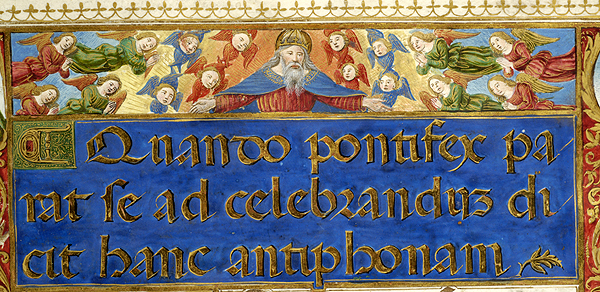 Quando pontifex pa
rat ſe ad celebranduꝫ di
cit hanc antiphonam